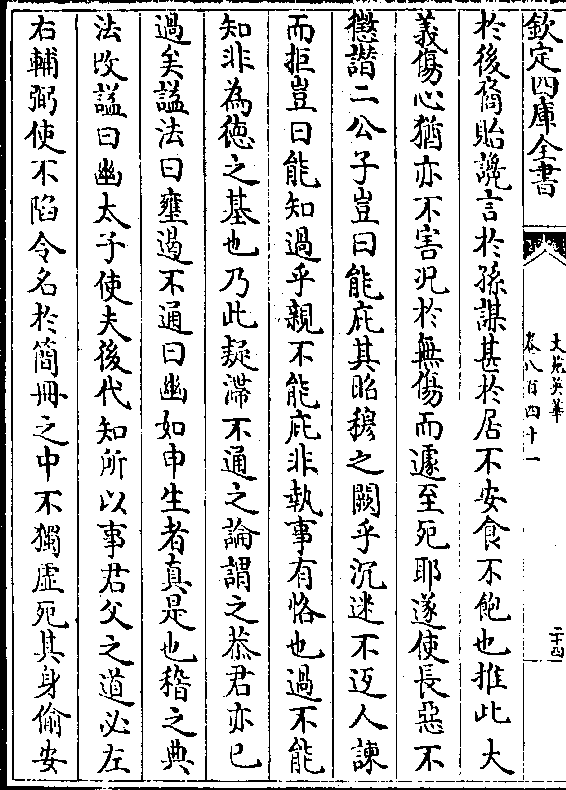 欽定四庫全書
文苑英華
卷八百四十一
二十四
於後裔貽譏言於孫謀甚於居不安食不飽也推此大
義傷心猶亦不害況於無傷而遽至死耶遂使長惡不
懲譖二公子豈曰能庇其昭穆之闕乎沉迷不迓人諫
而拒豈曰能知過乎親不能庇非執事有恪也過不能
知非為徳之基也乃此疑滯不通之論謂之恭君亦已
過矣諡法曰壅遏不通曰幽如申生者真是也稽之典
法改諡曰幽太子使夫後代知所以事君父之道必左
右輔弼使不陷令名於簡冊之中不獨虛死其身偷安